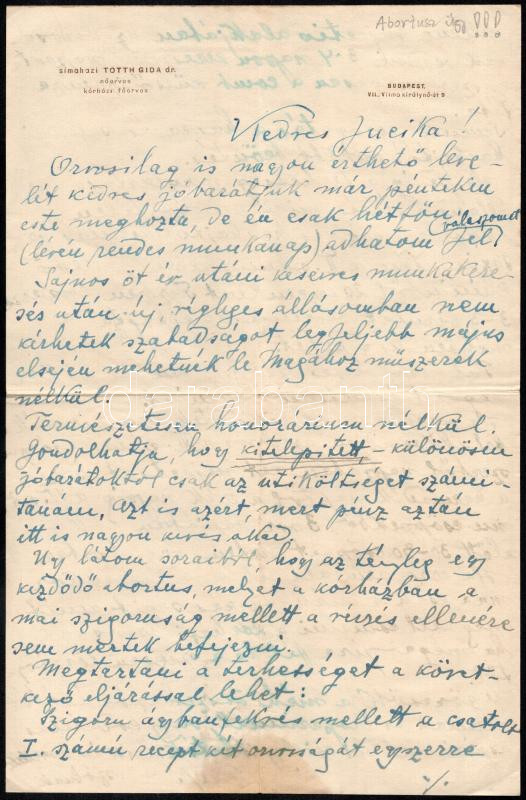 Abortusz !!!
simaházi TOTTH GIDA dr.
nőorvos
kórházi főorvos
BUDAPEST,
VII., Vilma királynő-út 9
Kedves Jucika!
Orvosilag is nagyon érthető leve-
lét kedves jóbarátjuk már pénteken
este meghozta, de én csak hétfőn
(lévén rendes munkanap) adhatom válaszomat fel.
Sajnos öt év utáni keserves munkakere-
sés után új, végleges állásomban nem
kérhetek szabadságot, legfeljebb május
elsején mehetnék le Magához műszerek
nélkül.
Természetesen honorárium nélkül.
Gondolhatja, hogy kitelepített, – különösen
jóbarátoktól csak az utiköltséget számi-
tanám, azt is azért, mert pénz aztán
itt is nagyon kevés akad.
Ugy látom soraiból, hogy az tényleg egy
kezdődő abortus, melyet a kórházban a
mai szigoruság mellett a vérzés ellenére
sem mertek befejezni.
Megtartani a terhességet a követ-
kező eljárással lehet:
Szigoru ágybanfekvés mellett a csatolt
I. számú recept két orvosságát egyszerre
./.
darabanth